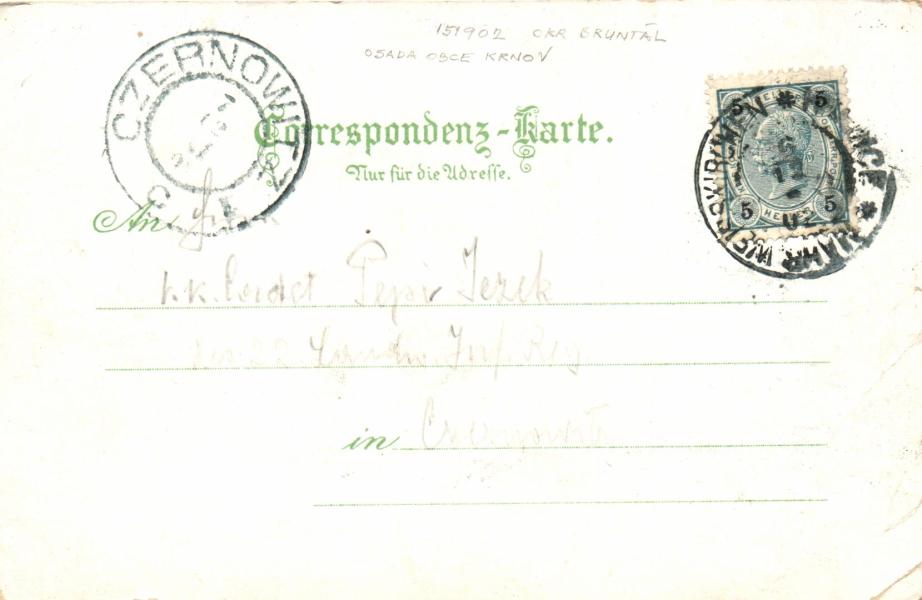 151902 OKR BRUNTÁL
OSADA OBCE KRNOV
CZERNOWITZ
Correspondenz-Karte.
Nur für die Adresse.
5 5
5 HELLER 5
MÄHR WEISSKIRCHEN
02
An
k.k. Cadet Pepi Jezek
22 Landw. Inf. Reg
in Czernowitz